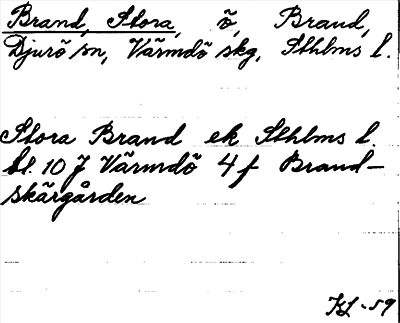 Brand, Stora, ö, Brand,
Djurö sn, Värmdö skg, Sthlms l.
Stora Brand ek Sthlms l.
bl. 10 J Värmdö 4 f Brand-
skärgården
KL -59